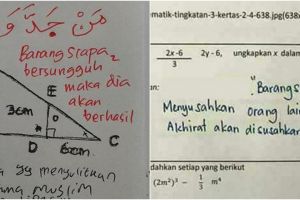 مَنْ جَدَّ وَ
Barang siapa
bersungguh
maka dia
akan
berhasil
E
3cm
D
6cm
C
yg menyulitkan
muslim
matik-tingkatan-3-kertas-2-4-638.jpg(638x
2x-6
3
2y - 6, ungkapkan x dalam
Barangs
Menyusahkan orang lain
Akhirat akan disusahkan
dahkan setiap yang berikut
(2m²)³ - 1/3 m⁴